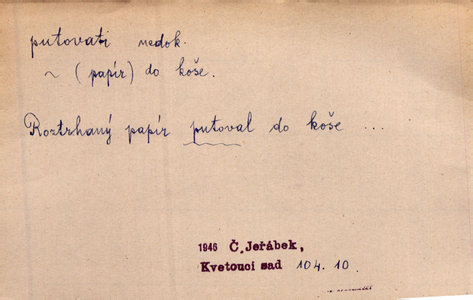 putovati nedok.
~ (papír) do koše.
Roztrhaný papír putoval do koše ...
1946 Č. Jeřábek,
Kvetoucí sad 104. 10.